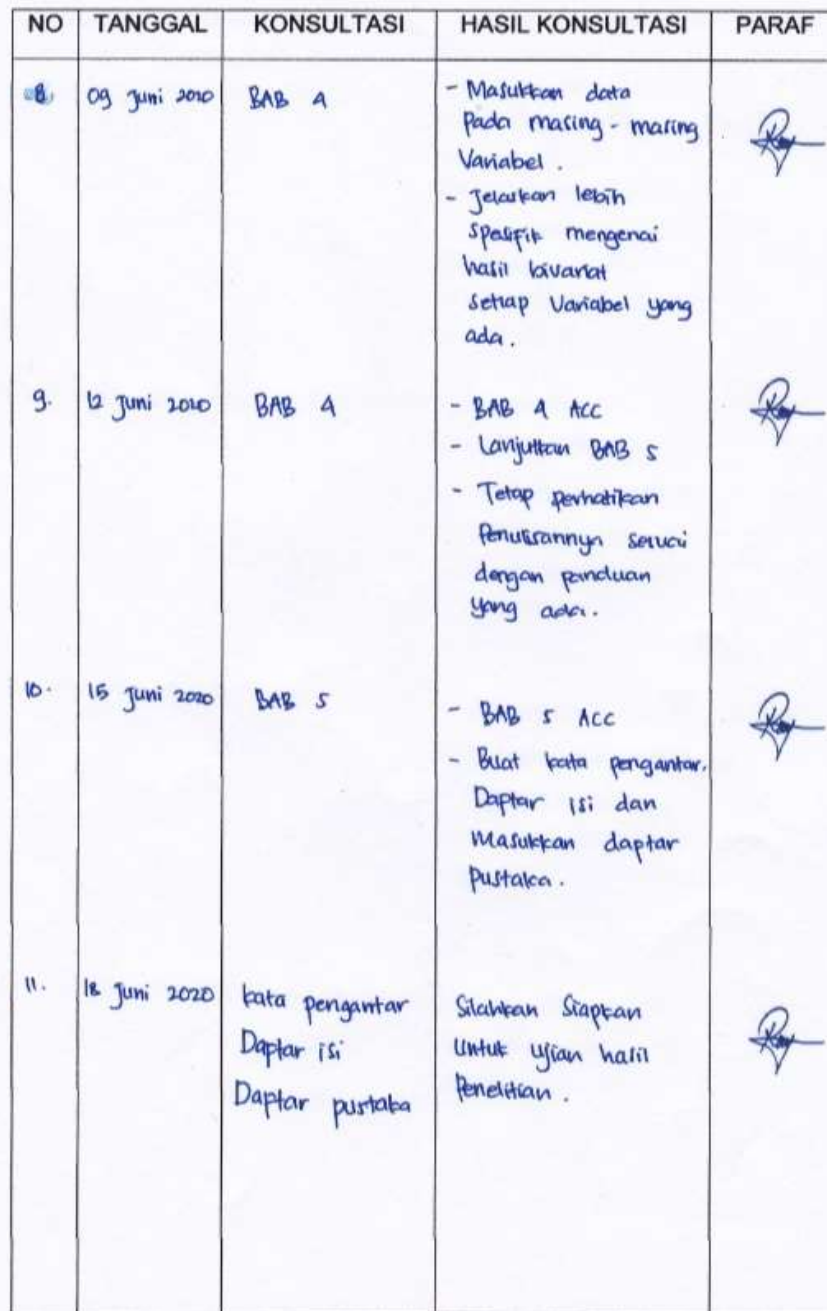 NO TANGGAL KONSULTASI HASIL KONSULTASI PARAF
8. 09 Juni 2020 BAB 4 - Masukkan data
pada masing-masing
Variabel.
- Jelaskan lebih
spesifik mengenai
hasil bivariat
setiap Variabel yang
ada.
9. 12 Juni 2020 BAB 4 - BAB 4 ACC
- Lanjutkan BAB 5
- Tetap perhatikan
Penulisannya sesuai
dengan panduan
yang ada.
10. 15 Juni 2020 BAB 5 - BAB 5 ACC
- Buat kata pengantar.
Daptar isi dan
Masukkan daptar
pustaka.
11. 18 Juni 2020 kata pengantar Silahkan Siapkan
Daptar isi untuk ujian hasil
Daptar pustaka Penelitian.